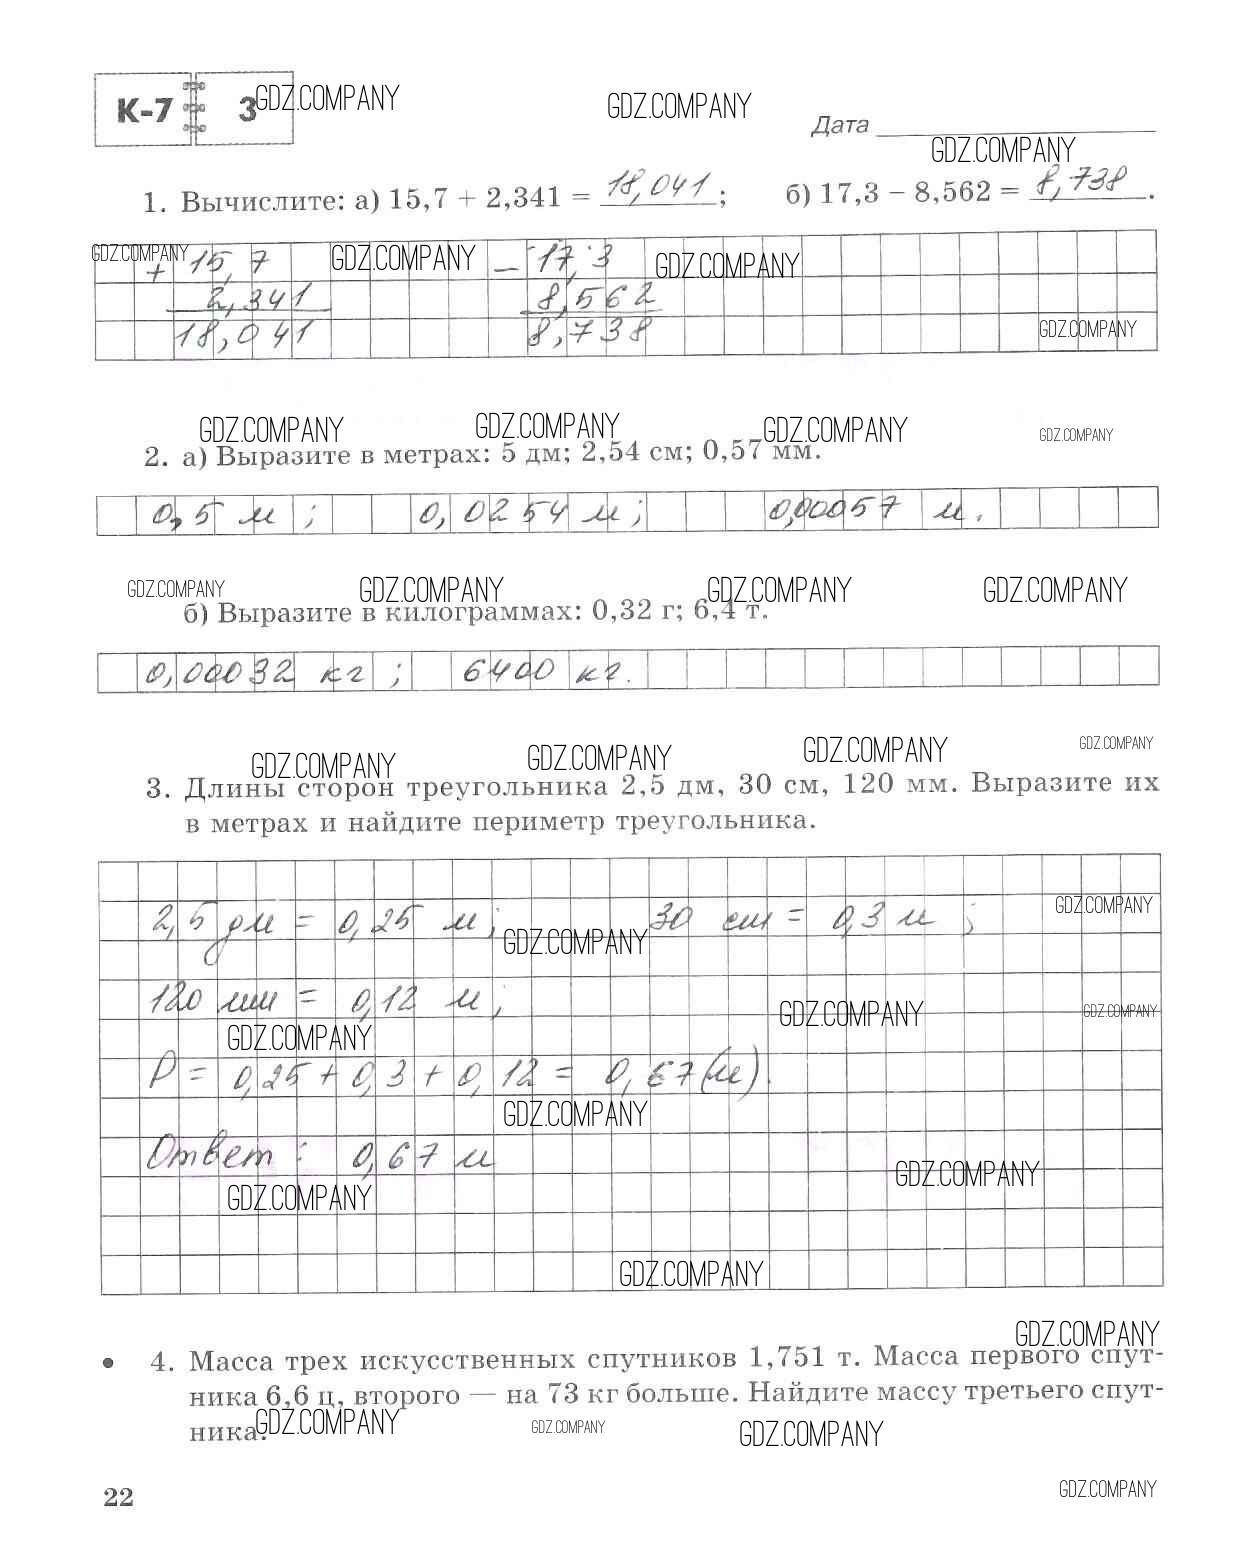 К-7 3 GDZ.COMPANY GDZ.COMPANY
Дата
GDZ.COMPANY
1. Вычислите: а) 15,7 + 2,341 = 18,041; б) 17,3 − 8,562 = 8,738.
GDZ.COMPANY + 15,7 GDZ.COMPANY − 17,3 GDZ.COMPANY
2,341 8,562
18,041 8,738 GDZ.COMPANY
GDZ.COMPANY GDZ.COMPANY GDZ.COMPANY GDZ.COMPANY
2. а) Выразите в метрах: 5 дм; 2,54 см; 0,57 мм.
0,5 м; 0,0254 м; 0,00057 м.
GDZ.COMPANY GDZ.COMPANY GDZ.COMPANY GDZ.COMPANY
б) Выразите в килограммах: 0,32 г; 6,4 т.
0,00032 кг; 6400 кг.
GDZ.COMPANY GDZ.COMPANY GDZ.COMPANY GDZ.COMPANY
3. Длины сторон треугольника 2,5 дм, 30 см, 120 мм. Выразите их
в метрах и найдите периметр треугольника.
2,5 дм = 0,25 м; 30 см = 0,3 м; GDZ.COMPANY
GDZ.COMPANY
120 мм = 0,12 м; GDZ.COMPANY GDZ.COMPANY
GDZ.COMPANY
P = 0,25 + 0,3 + 0,12 = 0,67 (м).
GDZ.COMPANY
Ответ: 0,67 м
GDZ.COMPANY
GDZ.COMPANY
GDZ.COMPANY
GDZ.COMPANY
• 4. Масса трех искусственных спутников 1,751 т. Масса первого спут-
ника 6,6 ц, второго — на 73 кг больше. Найдите массу третьего спут-
ника. GDZ.COMPANY GDZ.COMPANY GDZ.COMPANY
22 GDZ.COMPANY